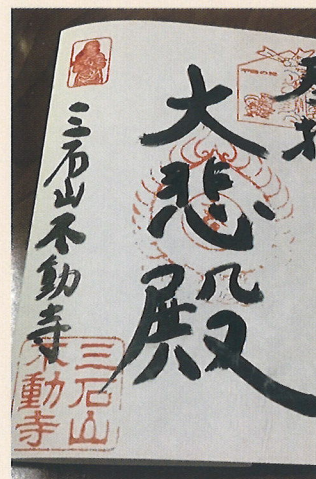 大悲殿
三石山不動寺
三石山
不動寺